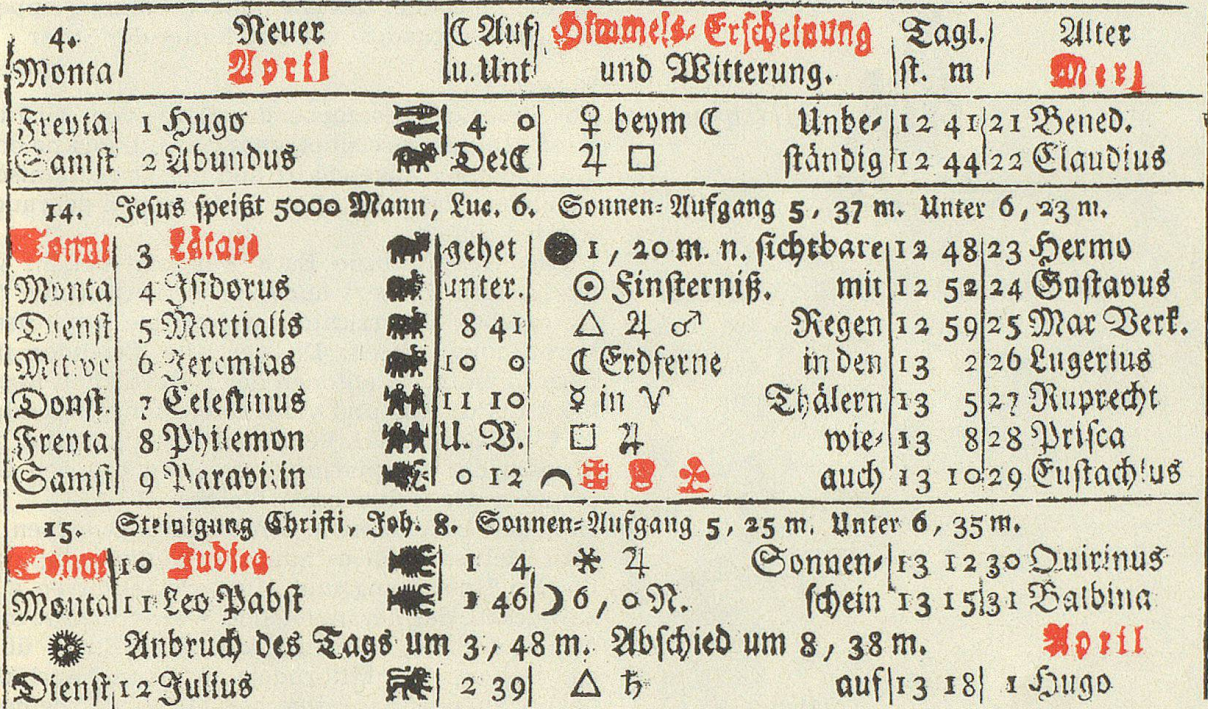 4. Neuer ☾ Auf Himmels-Erscheinung Tagl. Alter
Monta April u. Unt und Witterung. st. m Merz
Freyta 1 Hugo 4 0 ♀ beym ☾ Unbe- 12 41 21 Bened.
Samst 2 Abundus Der ☾ ♃ □ ständig 12 44 22 Claudius
14. Jesus speißt 5000 Mann, Luc. 6. Sonnen-Aufgang 5, 37 m. Unter 6, 23 m.
Sonnt 3 Lätare gehet ● 1, 20 m. n. sichtbare 12 48 23 Hermo
Monta 4 Isidorus unter. ☉ Finsterniß. mit 12 52 24 Gustavus
Dienst 5 Martialis 8 41 △ ♃ ♂ Regen 12 59 25 Mar Verk.
Mitwo 6 Jeremias 10 0 ☾ Erdferne in den 13 2 26 Lugerius
Donst. 7 Celestinus 11 10 ☿ in ♈ Thälern 13 5 27 Ruprecht
Freyta 8 Philemon U. V. □ ♃ wie- 13 8 28 Prisca
Samst 9 Paravizin 0 12 auch 13 10 29 Eustachius
15. Steinigung Christi, Joh. 8. Sonnen-Aufgang 5, 25 m. Unter 6, 35 m.
Sonnt 10 Judica 1 4 ⚹ ♃ Sonnen- 13 12 30 Quirinus
Monta 11 Leo Pabst 1 46 ☽ 6, 0 N. schein 13 15 31 Balbina
Anbruch des Tags um 3, 48 m. Abschied um 8, 38 m. April
Dienst 12 Julius 2 39 △ ♄ auf 13 18 1 Hugo